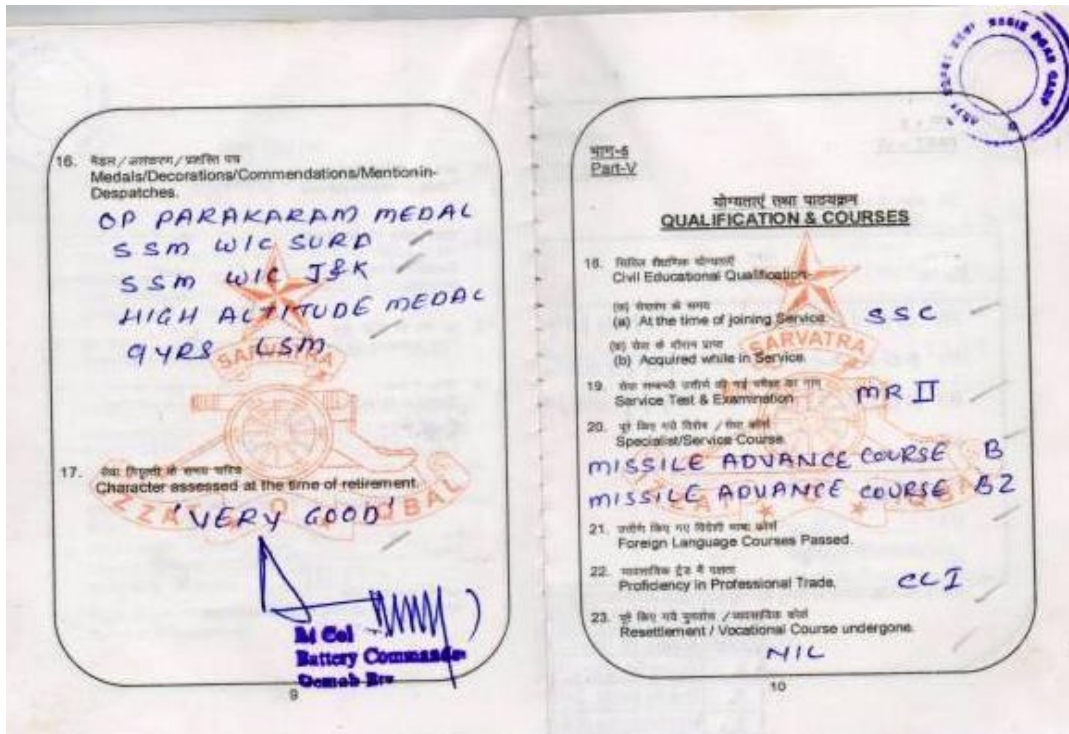 16. मेडल/अलंकरण/प्रशस्ति पत्र
Medals/Decorations/Commendations/Mentionin-
Despatches.
OP PARAKARAM MEDAL
SSM W/C SURA
SSM W/C J&K
HIGH ALTITUDE MEDAL
9 YRS LSM
SARVATRA
17. सेवा निवृत्ती के समय चरित्र
Character assessed at the time of retirement.
IZZAT O IQBAL
'VERY GOOD'
Lt Col
Battery Commander
Demob Bty
9
भाग-5
Part-V
योग्यताएं तथा पाठ्यक्रम
QUALIFICATION & COURSES
18. सिविल शैक्षणिक योग्यताएँ
Civil Educational Qualification-
(क) सेवारंभ के समय
(a) At the time of joining Service. SSC
(ख) सेवा के दौरान प्राप्त
(b) Acquired while in Service.
SARVATRA
19. सेवा सम्बन्धी उत्तीर्ण की गई परीक्षा का नाम
Service Test & Examination MR II
20. पूरे किए गये विशेष / सेवा कोर्स
Specialist/Service Course.
MISSILE ADVANCE COURSE B
MISSILE ADVANCE COURSE B2
21. उत्तीर्ण किए गए विदेशी भाषा कोर्स
Foreign Language Courses Passed.
22. व्यावसायिक ट्रेड में दक्षता
Proficiency in Professional Trade. CL I
23. पूरे किए गये पुनर्वास / व्यावसायिक कोर्स
Resettlement / Vocational Course undergone.
NIL
10